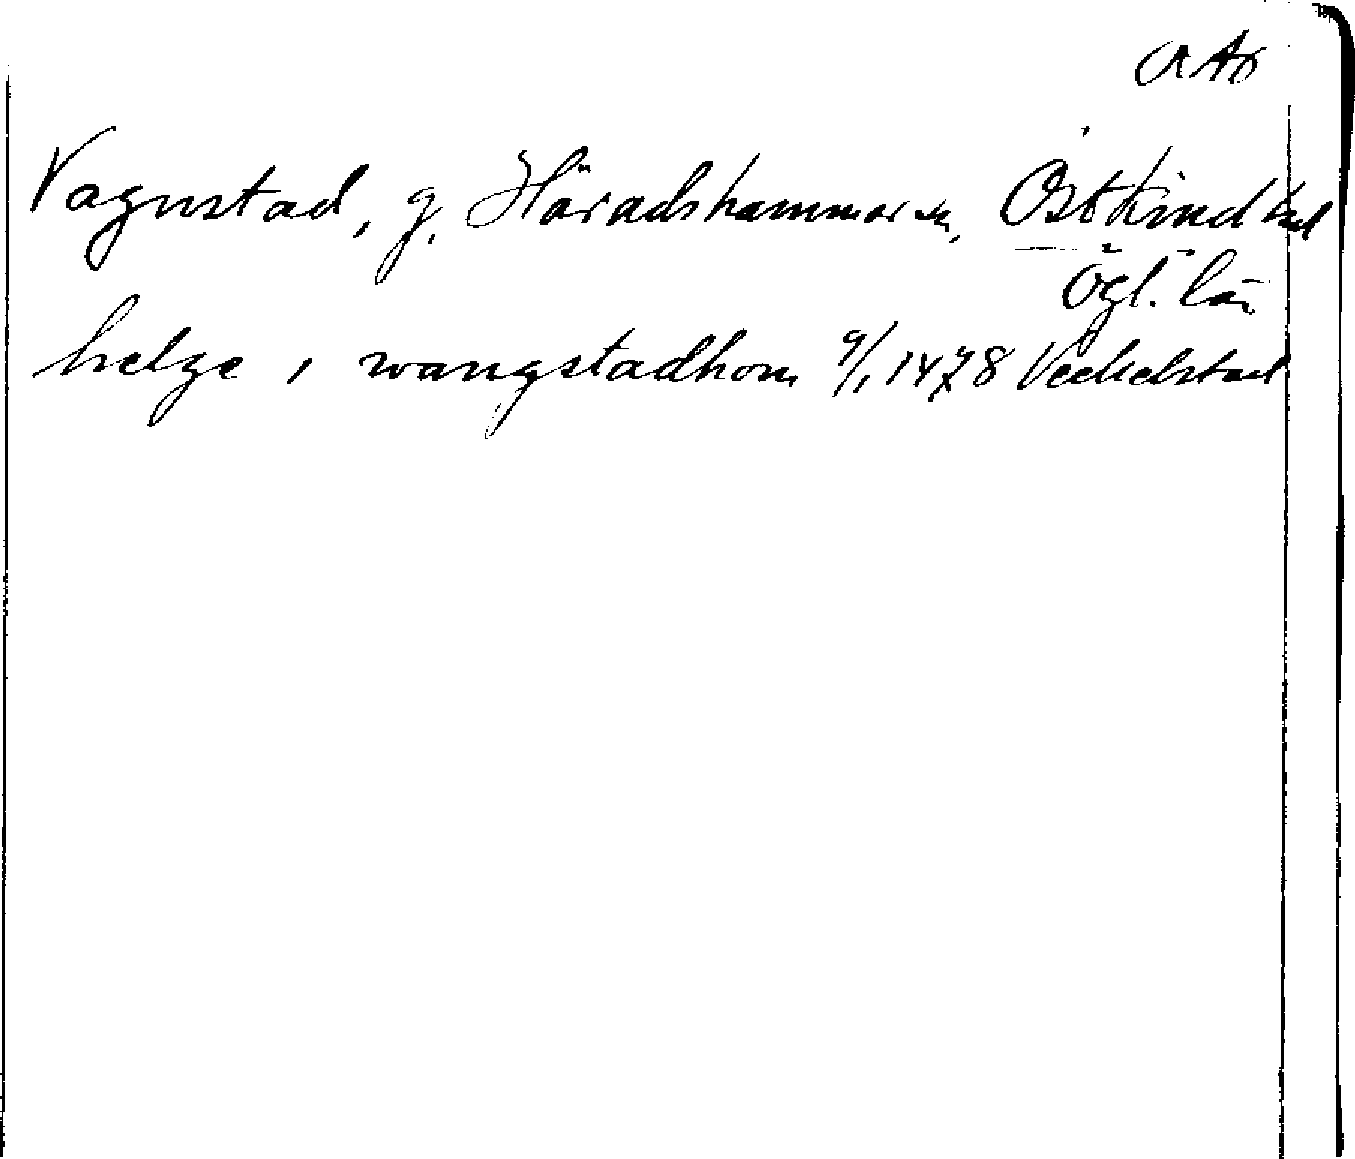 OAÖ
Vagnstad, g, Häradshammar sn, Östkind hd
Ögl. län
helge i wangstadhom 9/1 1478 Veckelstad